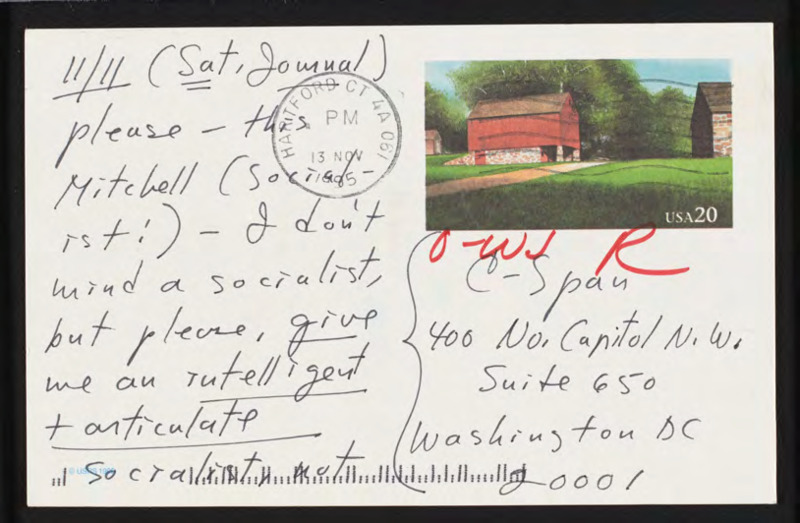 11/11 (Sat, Journal)
please – this
Mitchell (Social-
ist!) – I don't
mind a socialist,
but please, give
me an intelligent
+ articulate
socialist, not
HARTFORD CT 4A 061
PM
13 NOV
1995
USA20
R
C-Span
400 No. Capitol N.W.
Suite 650
Washington DC
20001